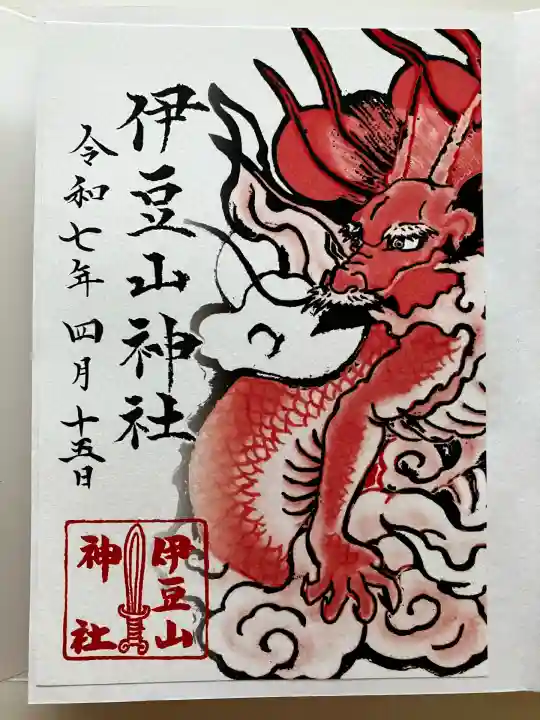 伊豆山神社
令和七年 四月 十五日
伊豆山
神社